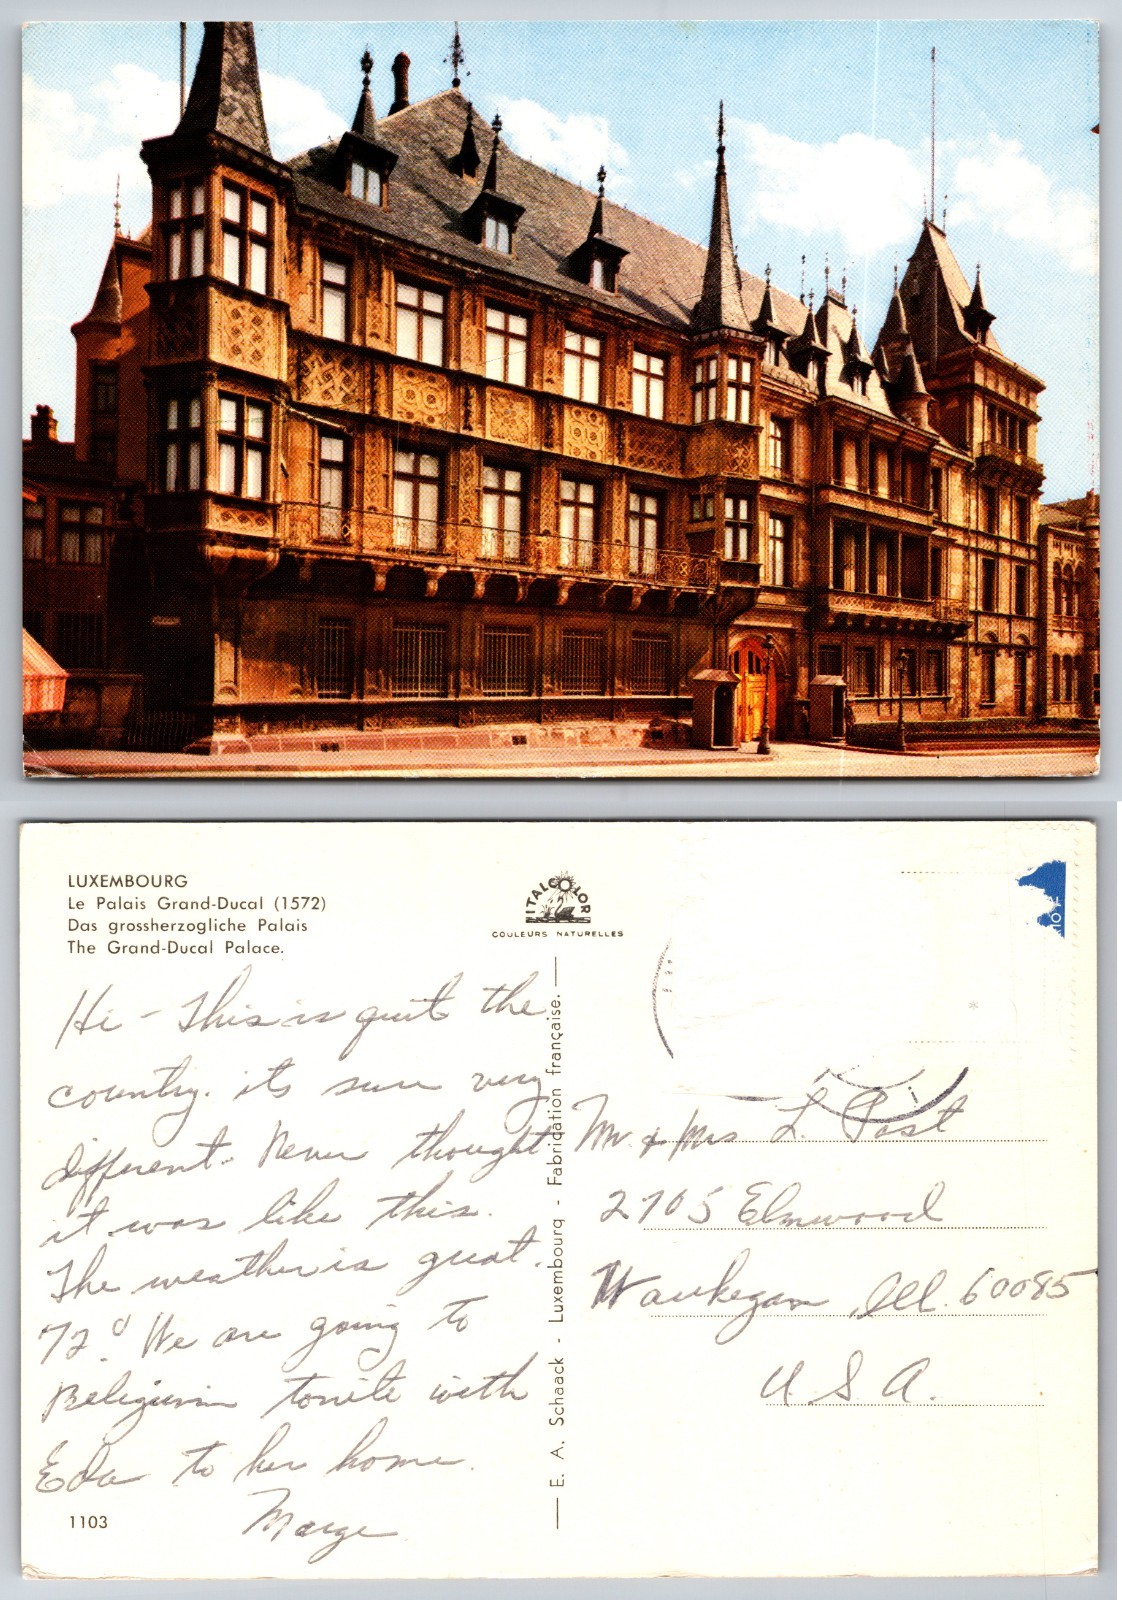 LUXEMBOURG
Le Palais Grand-Ducal (1572)
Das grossherzogliche Palais
The Grand-Ducal Palace.
ITALCOLOR
COULEURS NATURELLES
Hi - This is quite the
country. its sure very
different. Never thought
it was like this.
The weather is great.
72° We are going to
Beligium tonite with
Eda to her home.
Marge
1103
E. A. Schaack - Luxembourg - Fabrication française.
Mr. & Mrs L. Post
2705 Elmwood
Waukegan, Ill. 60085
U S A.